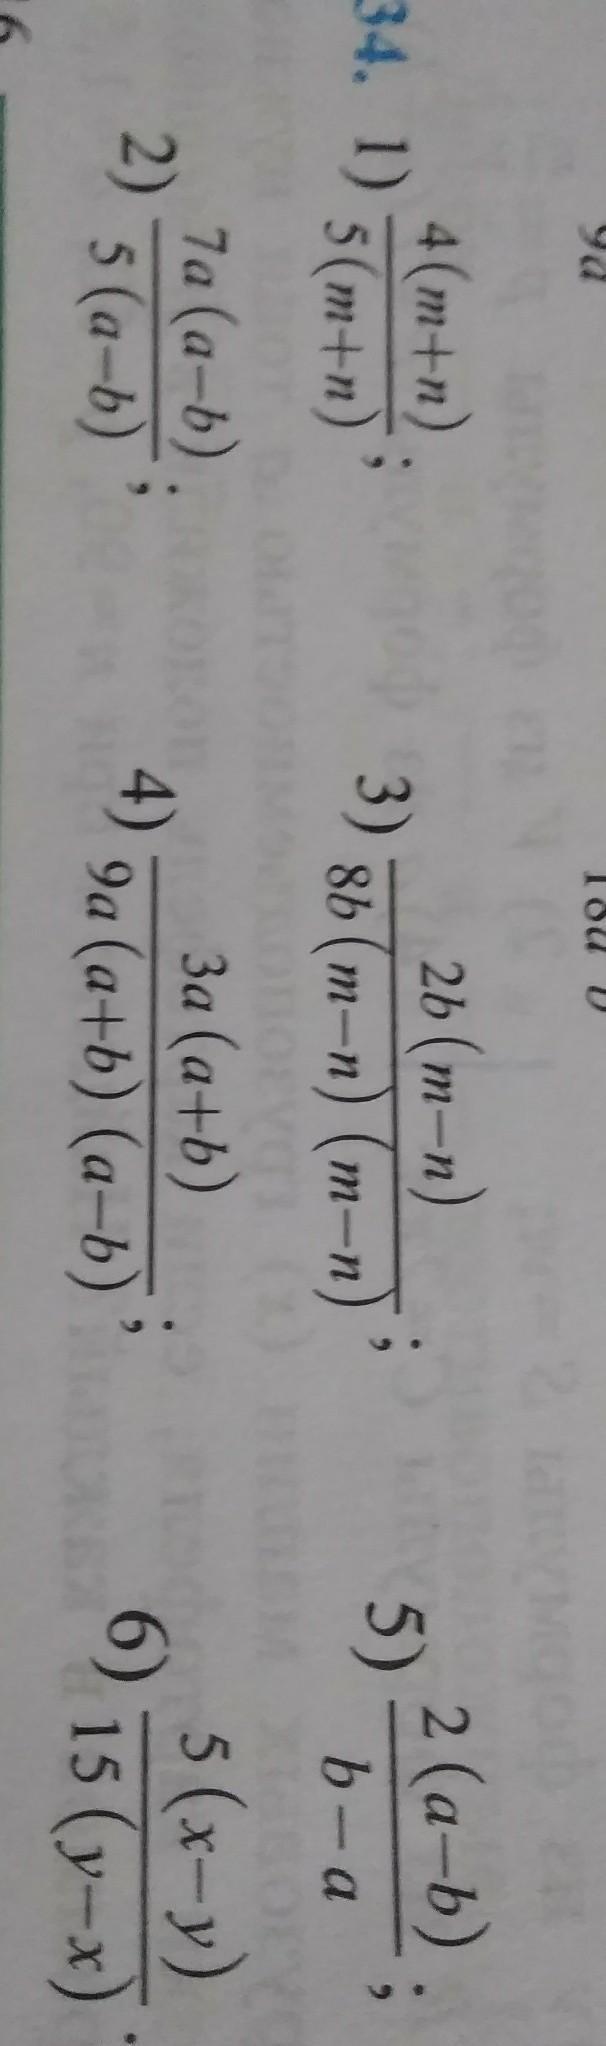 34. 1) 4(m+n)/5(m+n); 3) 2b(m−n)/8b(m−n)(m−n); 5) 2(a−b)/b−a;
2) 7a(a−b)/5(a−b); 4) 3a(a+b)/9a(a+b)(a−b); 6) 5(x−y)/15(y−x).